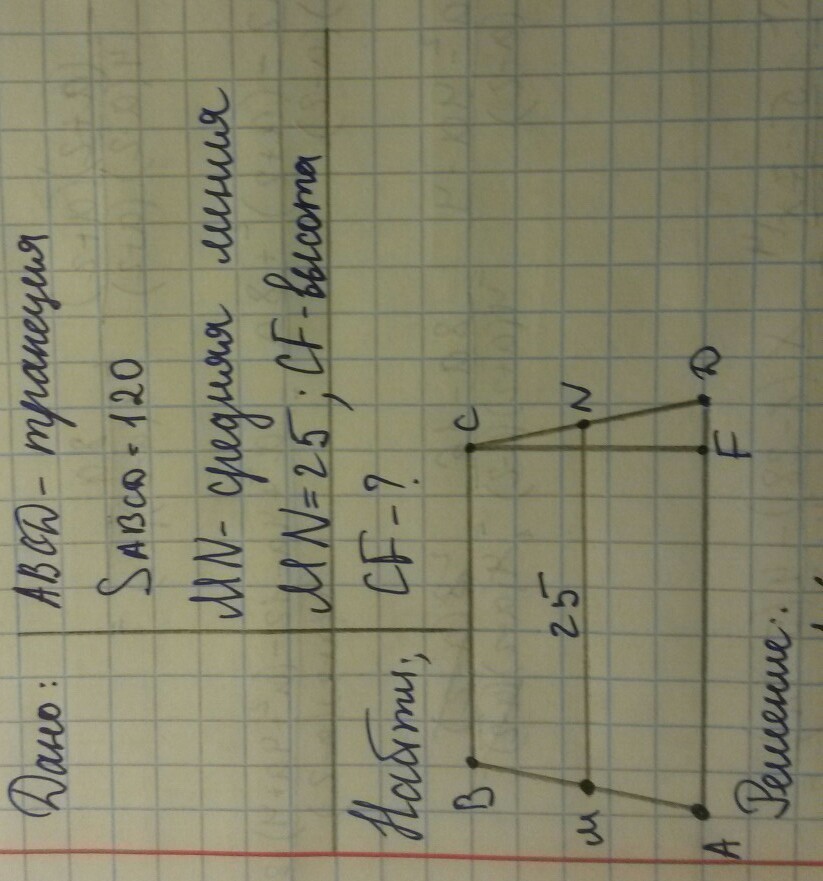 Дано: ABCD - трапеция
SABCD = 120
MN - средняя линия
MN = 25; CF - высота
Найти: CF - ?
B C
M 25 N
A F D
Решение: